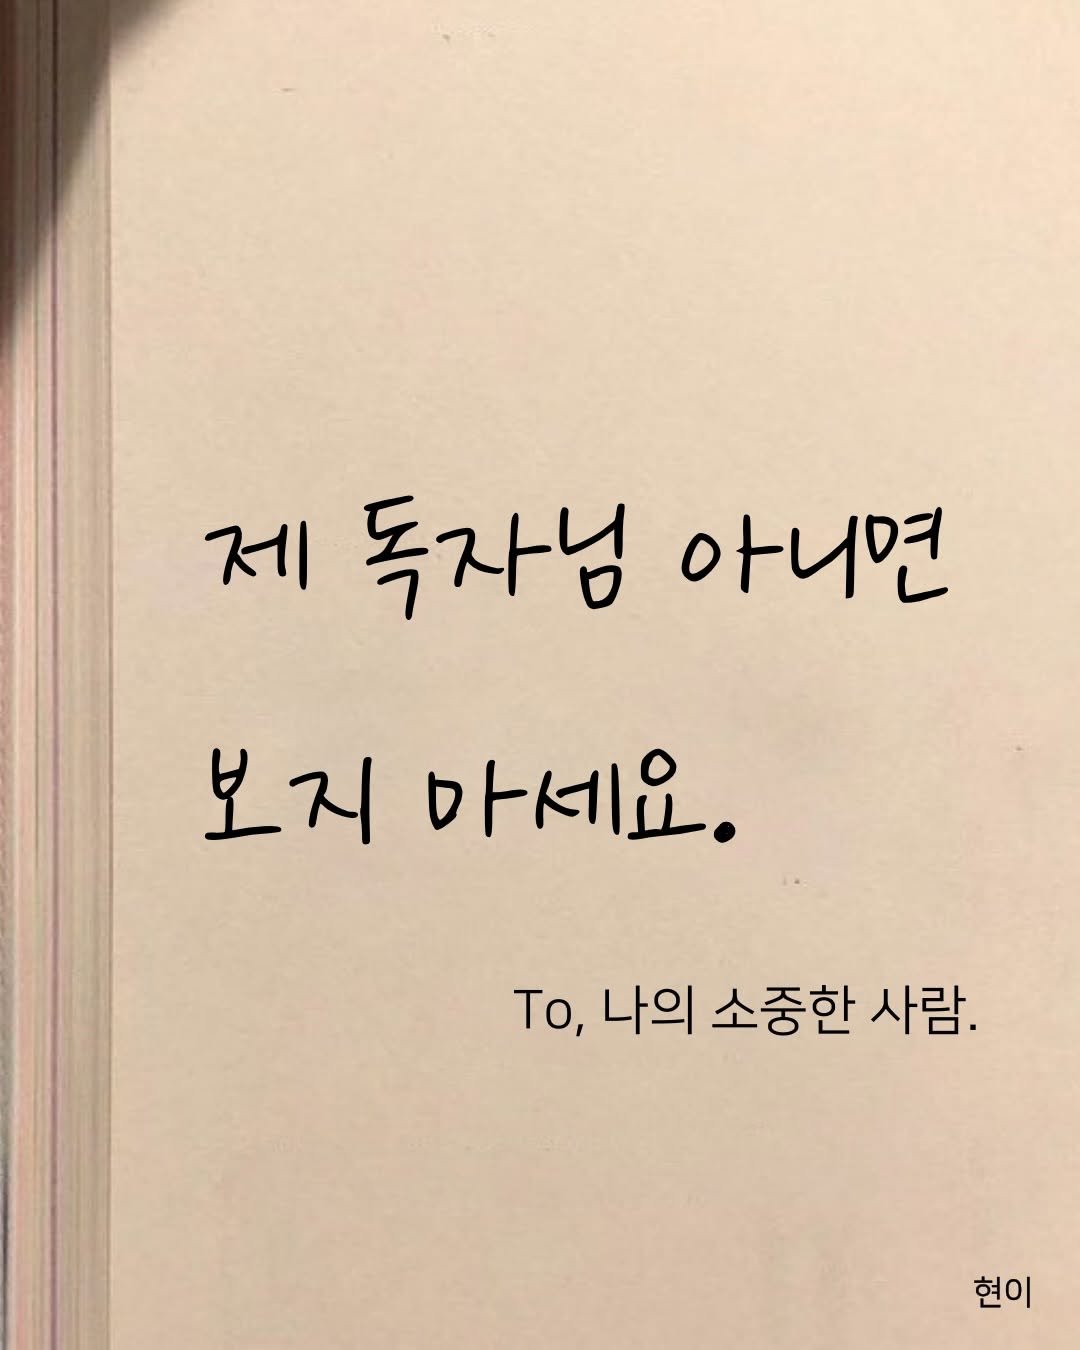 제 독자님 아니면
보지 마세요.
To, 나의 소중한 사람.
현이